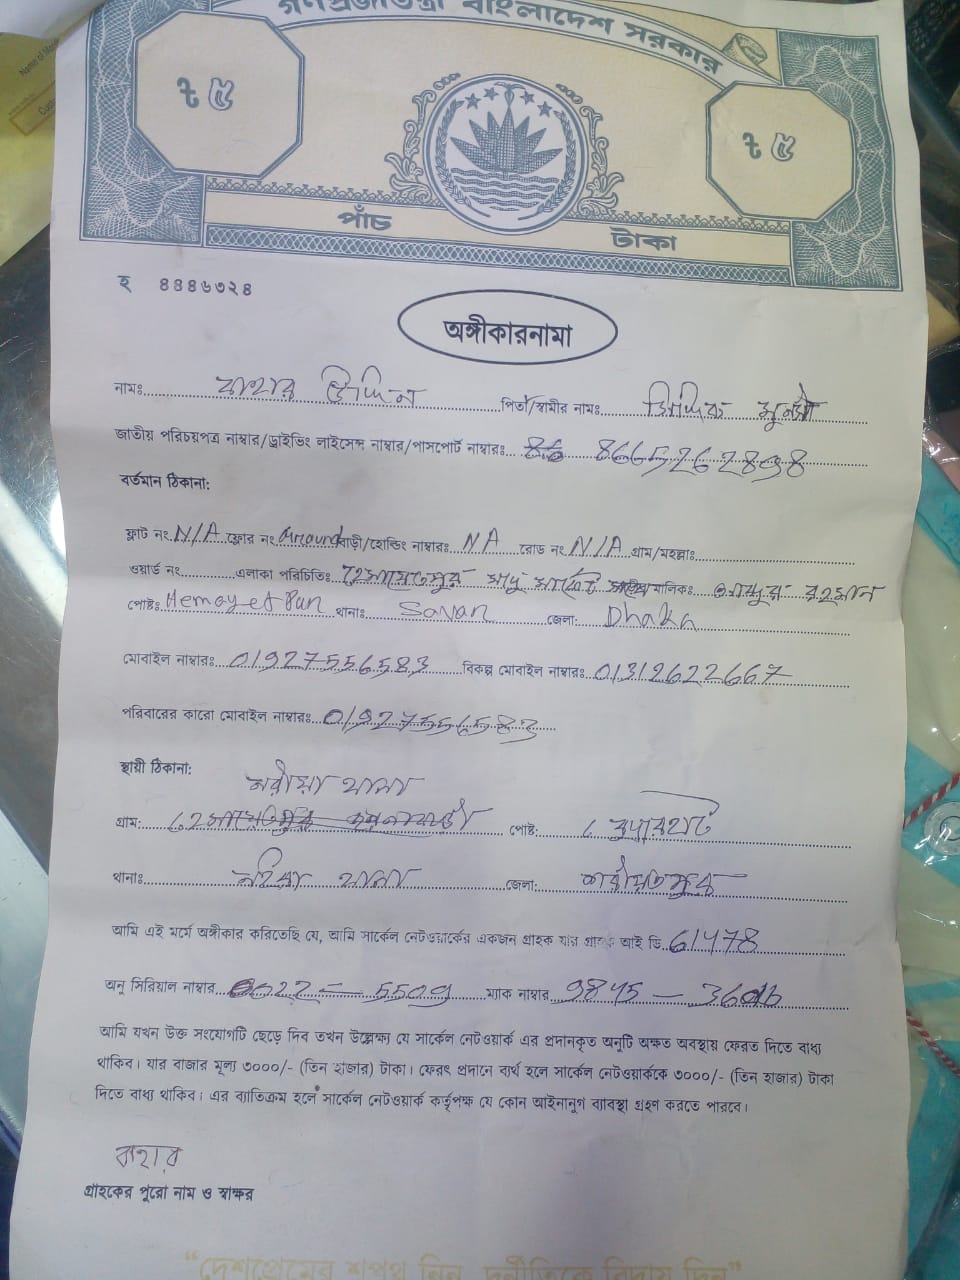 গণপ্রজাতন্ত্রী বাংলাদেশ সরকার
৳ ৫ ৳ ৫
পাঁচ টাকা
হ ৪৪৪৬৩২৪
অঙ্গীকারনামা
নামঃ বাহার উদ্দিন পিতা/স্বামীর নামঃ সিদ্দিক মুন্সী
জাতীয় পরিচয়পত্র নাম্বার/ড্রাইভিং লাইসেন্স নাম্বার/পাসপোর্ট নাম্বারঃ 8665262898
বর্তমান ঠিকানা:
ফ্লাট নং N/A ফ্লোর নং Ground বাড়ী/হোল্ডিং নাম্বারঃ NA রোড নং N/A গ্রাম/মহল্লাঃ
ওয়ার্ড নং এলাকা পরিচিতিঃ হেমায়েতপুর মার্কেট মালিকঃ রহমান
পোষ্টঃ Hemayet Pur থানাঃ Savar জেলা: Dhaka
মোবাইল নাম্বারঃ 01927556583 বিকল্প মোবাইল নাম্বারঃ 01312622667
পরিবারের কারো মোবাইল নাম্বারঃ 01927556583
স্থায়ী ঠিকানা:
থানা
গ্রাম: পোষ্ট:
থানাঃ নড়িয়া থানা জেলা: শরীয়তপুর
আমি এই মর্মে অঙ্গীকার করিতেছি যে, আমি সার্কেল নেটওয়ার্কের একজন গ্রাহক যার গ্রাহক আই ডি 61478
অনু সিরিয়াল নাম্বার 0022 – 5509 ম্যাক নাম্বার 9845 –
আমি যখন উক্ত সংযোগটি ছেড়ে দিব তখন উল্লেক্ষ্য যে সার্কেল নেটওয়ার্ক এর প্রদানকৃত অনুটি অক্ষত অবস্থায় ফেরত দিতে বাধ্য
থাকিব। যার বাজার মূল্য ৩০০০/- (তিন হাজার) টাকা। ফেরৎ প্রদানে ব্যর্থ হলে সার্কেল নেটওয়ার্ককে ৩০০০/- (তিন হাজার) টাকা
দিতে বাধ্য থাকিব। এর ব্যাতিক্রম হলে সার্কেল নেটওয়ার্ক কর্তৃপক্ষ যে কোন আইনানুগ ব্যাবস্থা গ্রহণ করতে পারবে।
বাহার
গ্রাহকের পুরো নাম ও স্বাক্ষর
“দেশপ্রেমের শপথ নিন, দুর্নীতিকে বিদায় দিন”